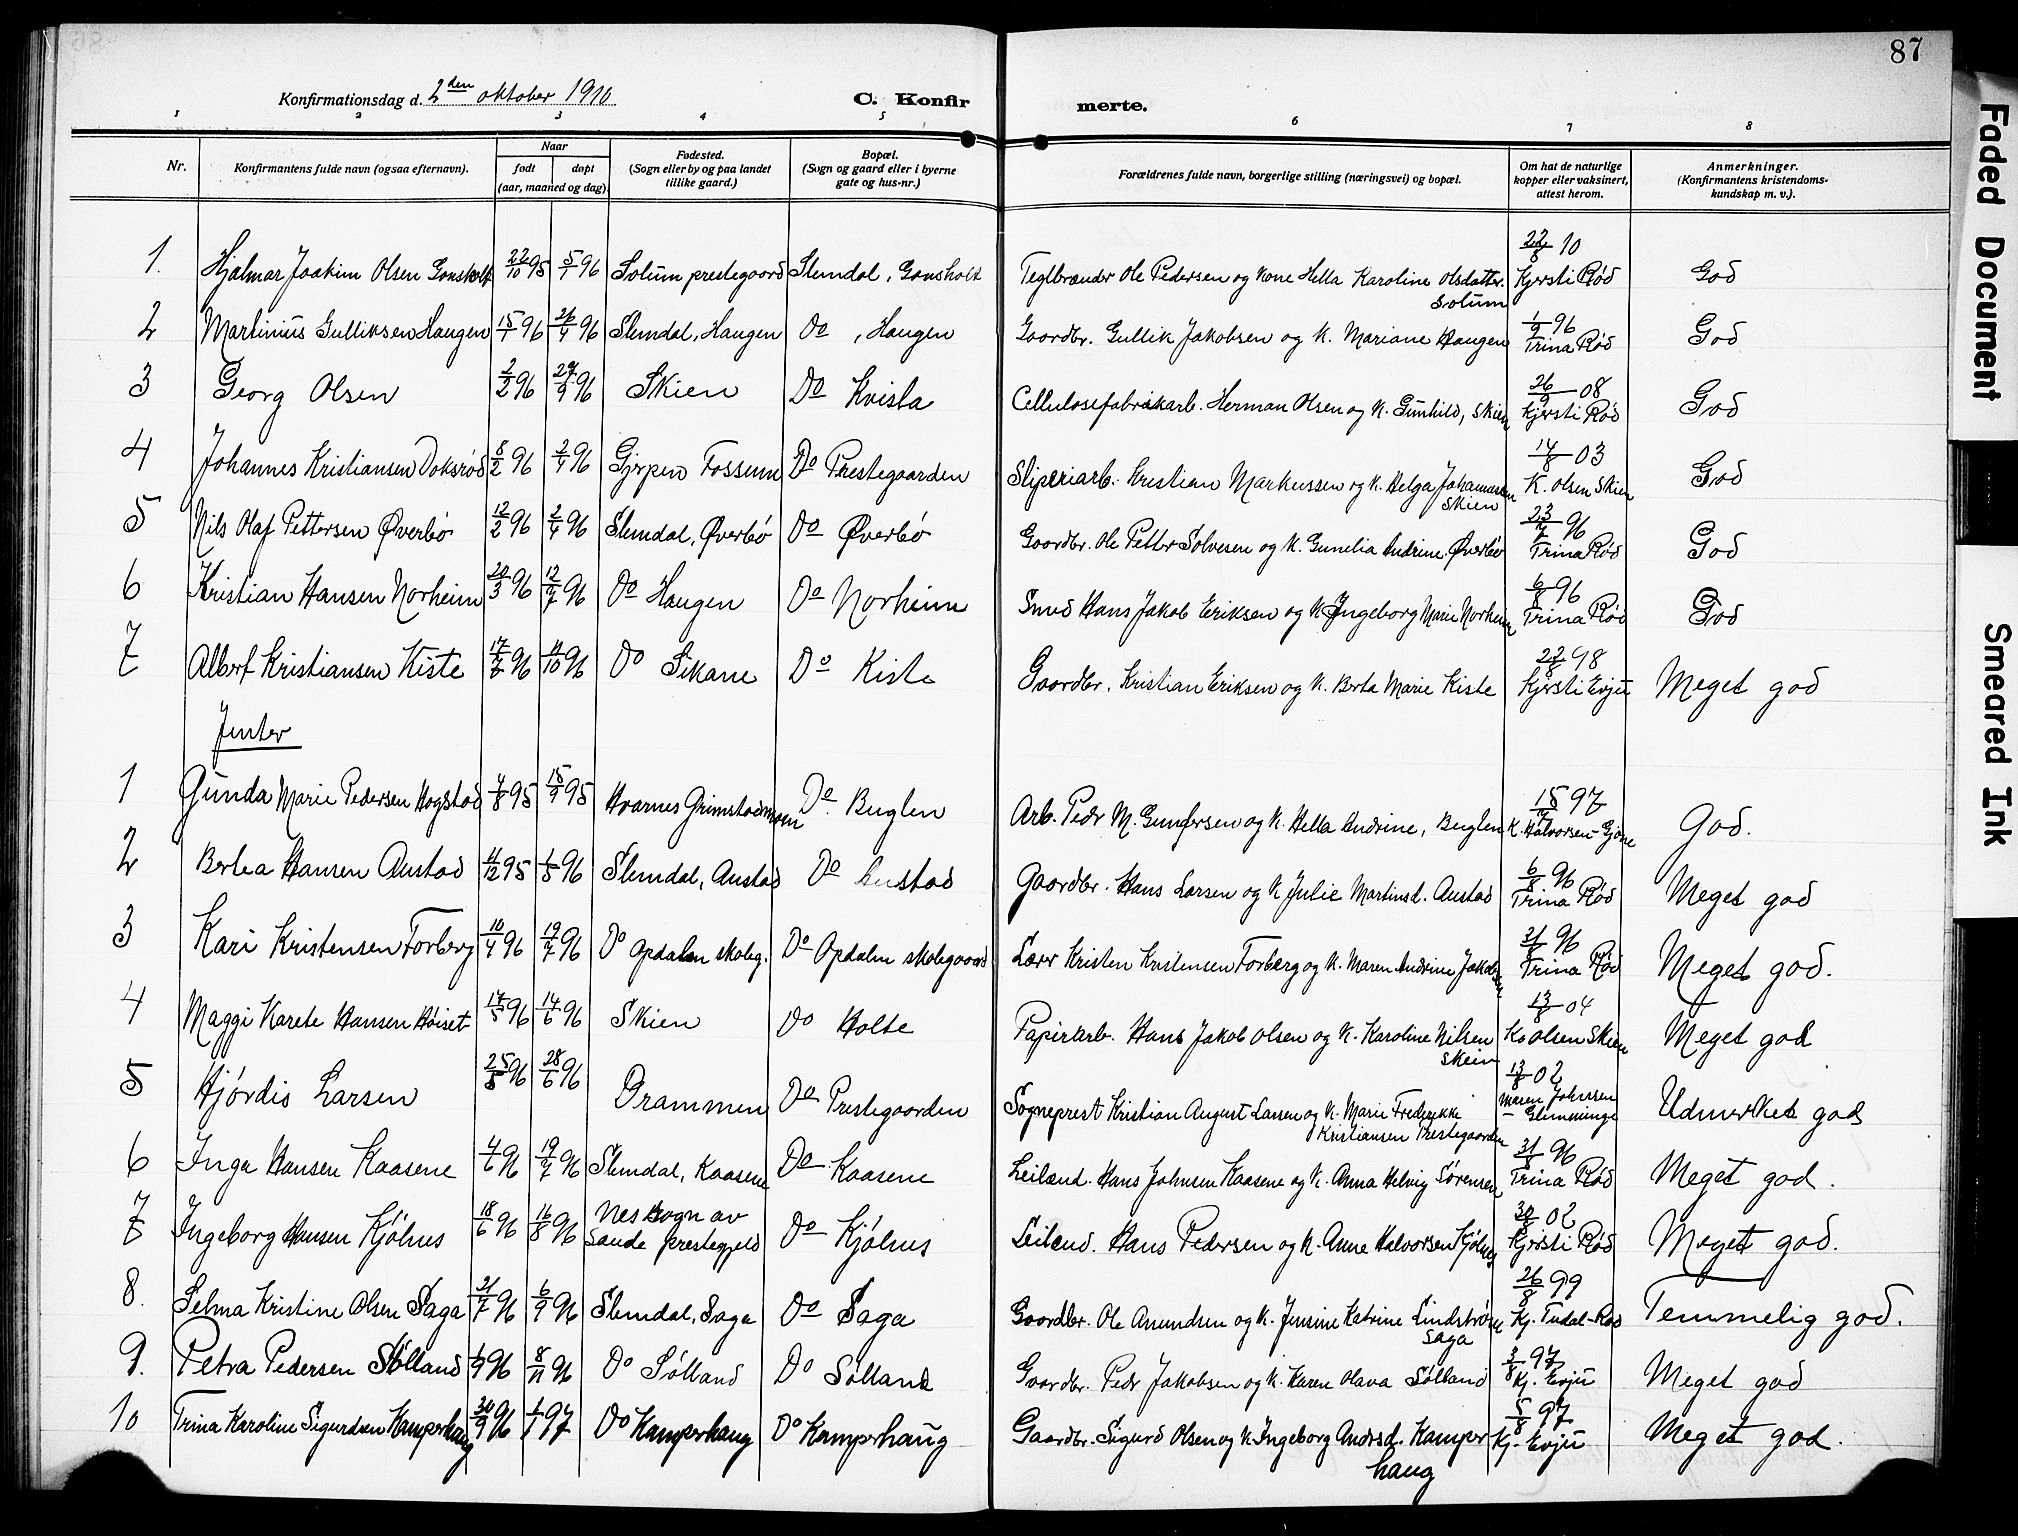 87
Konfirmationsdag d. 2den oktober 1910
C. Konfir merte.
1 2 3 4 5 6 7 8
Nr.
Konfirmantens fulde navn (ogsaa efternavn).
Naar
født døpt
(aar, maaned og dag)
Fødested.
(Sogn eller by og paa landet
tillike gaard.)
Bopæl.
(Sogn og gaard eller i byerne
gate og hus-nr.)
Forældrenes fulde navn, borgerlige stilling (næringsvei) og bopæl.
Om hat de naturlige
kopper eller vaksinert,
attest herom.
Anmerkninger.
(Konfirmantens kristendoms-
kundskap m. v.).
1. Hjalmar Joakim Olsen Gonsholt 22/10 95 5/1 96 Solum prestegaard Slemdal, Gonsholt Teglbrænder Ole Pedersen og kone Hella Karoline Olsdatter. Solum 22/8 10 Kjersti Rød God
2 Martinius Gulliksen Haugen 15/1 96 26/4 96 Slemdal, Haugen Do , Haugen Gaardbr. Gullik Jakobsen og k. Mariane Haugen 1/9 96 Trina Rød God
3 Georg Olsen 2/2 96 29/9 96 Skien Do Kvisla Cellulosefabrikarb. Herman Olsen og k. Gunhild, Skien 26/9 08 Kjersti Rød God
4 Johannes Kristiansen Doksrød 8/2 96 2/4 96 Gjerpen Fossum Do Prestegaarden Sliperiarb. Kristian Markussen og k. Helga Johannesen Skien 14/8 03 K. Olsen Skien God
5 Nils Olaf Pettersen Øverbö 12/2 96 2/4 96 Slemdal, Øverbö Do Øverbö Gaardbr. Ole Petter Solvesen og k. Gunelia Andrine Øverbö 23/7 96 Trina Rød God
6 Kristian Hansen Norheim 20/3 96 12/7 96 Do Haugen Do Norheim Smed Hans Jakob Eriksen og k. Ingeborg Marie Norheim 6/8 96 Trina Rød God
7 Albert Kristiansen Kiste 17/7 96 11/10 96 Do Sikane Do Kiste Gaardbr. Kristian Eriksen og k. Berta Marie Kiste 22/8 98 Kjersti Evju Meget god
Jenter
1 Gunda Marie Pedersen Hogstad 4/8 95 15/9 95 Hvarnes Do Buglen Arb. Peder M. Gundersen og k. Hella Andrine, Buglen 15/7 97 K. Halvorsen-Gjone God.
2 Bertea Hansen Austad 11/12 95 1/5 96 Slemdal, Austad Do Austad Gaardbr. Hans Larsen og k Julie Martinsd. Austad 6/8 96 Trina Rød Meget god
3 Kari Kristensen Forberg 10/4 96 19/7 96 Do Opdalen skoleg. Do Opdalen skolegaard Lærer Kristen Kristensen Forberg og k. Maren Andrine Jakobsen 31/8 96 Trina Rød Meget god.
4 Maggi Karete Hansen Høiset 17/5 96 14/6 96 Skien Do Holte Papirarb. Hans Jakob Olsen og k. Karoline Nilsen Skein 13/8 04 K. Olsen Skien Meget god
5 Hjördis Larsen 25/5 96 28/6 96 Drammen Do Prestegaarden Sogneprest Kristian August Larsen og k. Marie Fredrikke Kristiansen Prestegaarden 13/8 02 Maren Johnsen Meget god
6 Inga Hansen Kaasene 4/6 96 19/7 96 Slemdal, Kaasene Do Kaasene Leilænd. Hans Johnsen Kaasene og k. Anna Helvig Sørensen 31/8 96 Trina Rød Meget god.
7 Ingeborg Hansen Kjölnes 18/6 96 16/8 96 Nes sogn av Saude prestegjeld Do Kjölnes Leilænd. Hans Pedersen og k. Anne Halvorsen Kjölnes 30/8 02 Kjersti Rød Meget god.
8. Selma Kristine Olsen Saga 21/7 96 6/9 96 Slemdal, Saga Do Saga Gaardbr. Ole Amundsen og k. Jensine Katrine Lindström Saga 26/8 99 Kj. Tudal-Rød Temmelig god.
9. Petra Pedersen Sølland 1/9 96 8/11 96 Do Sölland Do Sölland Gaardbr. Peder Jakobsen og k. Karen Olava Sölland 3/8 97 Kj. Evju Meget god
10 Trina Karoline Sigurdsen Kamperhaug 30/9 96 1/1 97 Do Kamperhaug Do Kamperhaug Gaardbr. Sigurd Olsen og k Ingeborg Andersd. Kamperhaug 5/8 97 Kj. Evju Meget god.
Faded Document
Smeared Ink